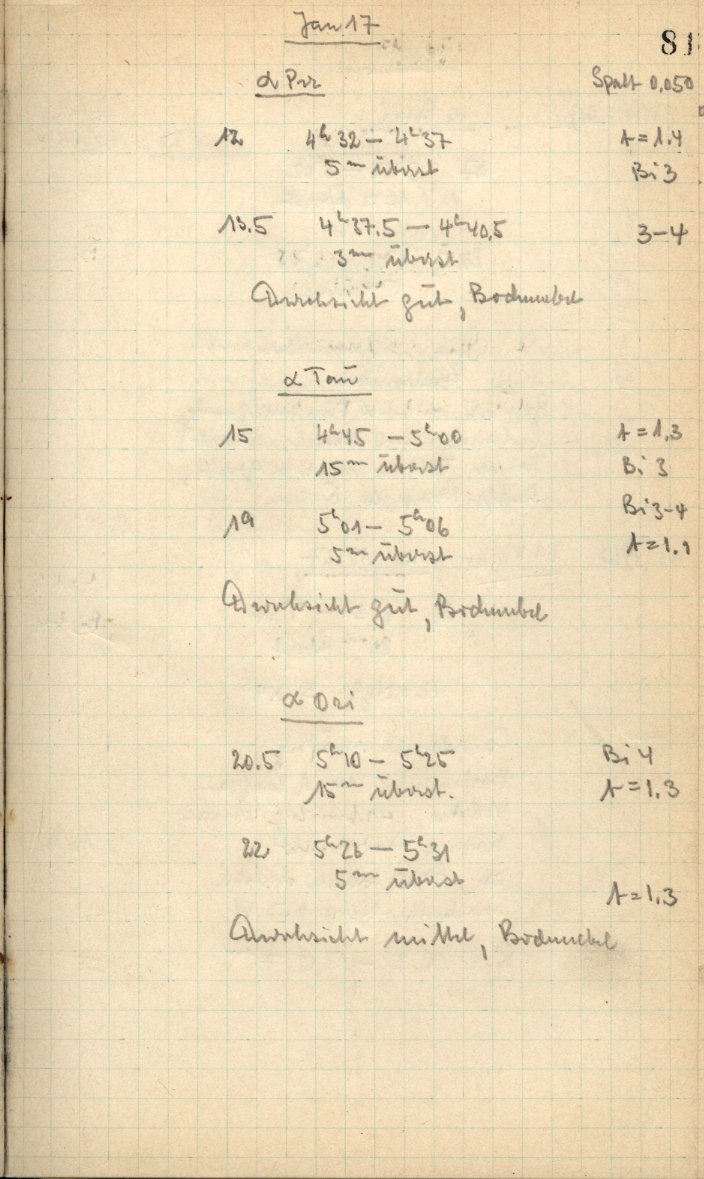 Jan 17
81
α Per Spalt 0,050
12 4h 32 — 4h 37 A = 1.4
5m überst Bi 3
13.5 4h 37.5 — 4h 40,5 3-4
3m überst
Durchsicht gut, Bodennebel
α Tau
15 4h 45 — 5h 00 A = 1.3
15m überst Bi 3
Bi 3-4
19 5h 01 — 5h 06
5m überst A = 1.1
Durchsicht gut, Bodennebel
α Ori
20.5 5h 10 — 5h 25 Bi 4
15m überst. A = 1.3
22 5h 26 — 5h 31
5m überst
A = 1.3
Durchsicht mittel, Bodennebel